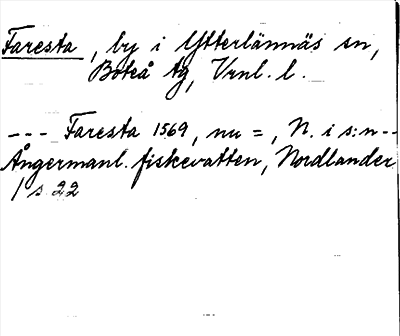 Faresta, by i Ytterlännäs sn,
Boteå tg, Vrnl. l.
--- Faresta 1569, nu =, N. i s:n --
Ångermanl. fiskevatten, Nordlander
1 s 22